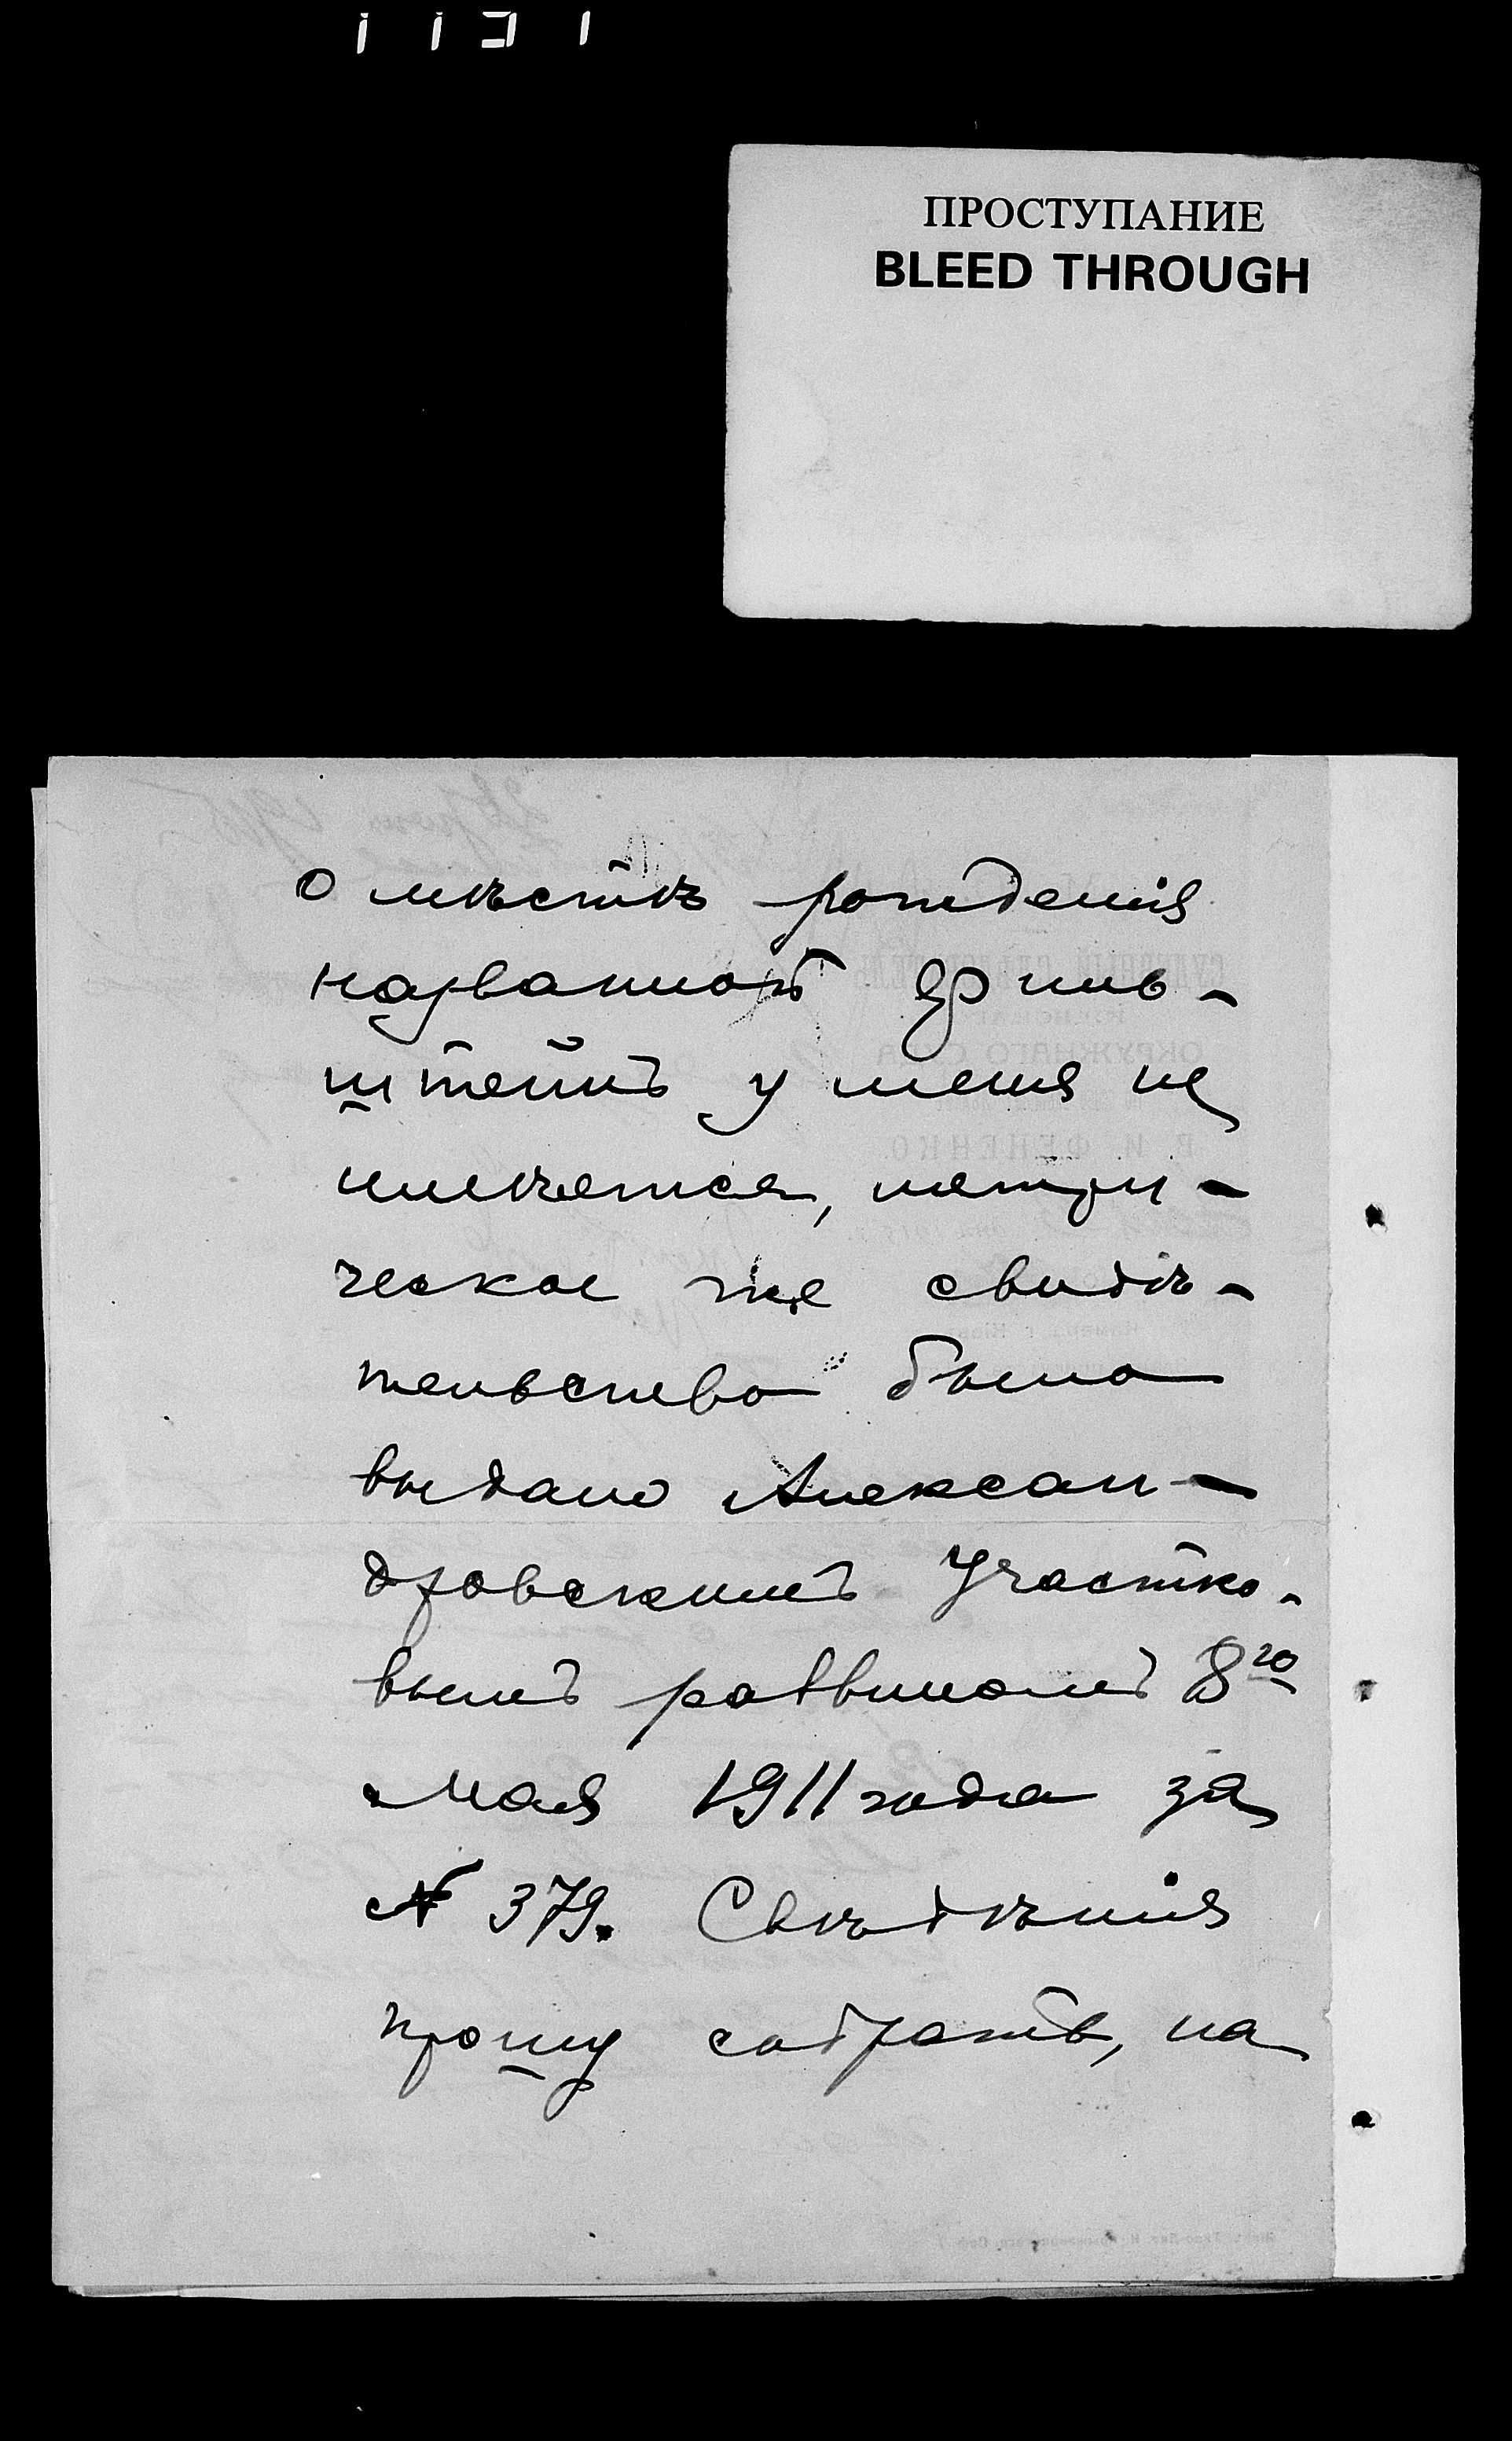 ПРОСТУПАНИЕ
BLEED THROUGH
о мѣстѣ рожденія
названной
штейнъ у меня не
имѣется, метри-
ческое же свидѣ-
тельство было
выдано Алексан-
дровскимъ Участко-
вымъ раввиномъ 8го
Мая 1911 года за
№ 379. Свѣдѣнія
прошу собрать, на